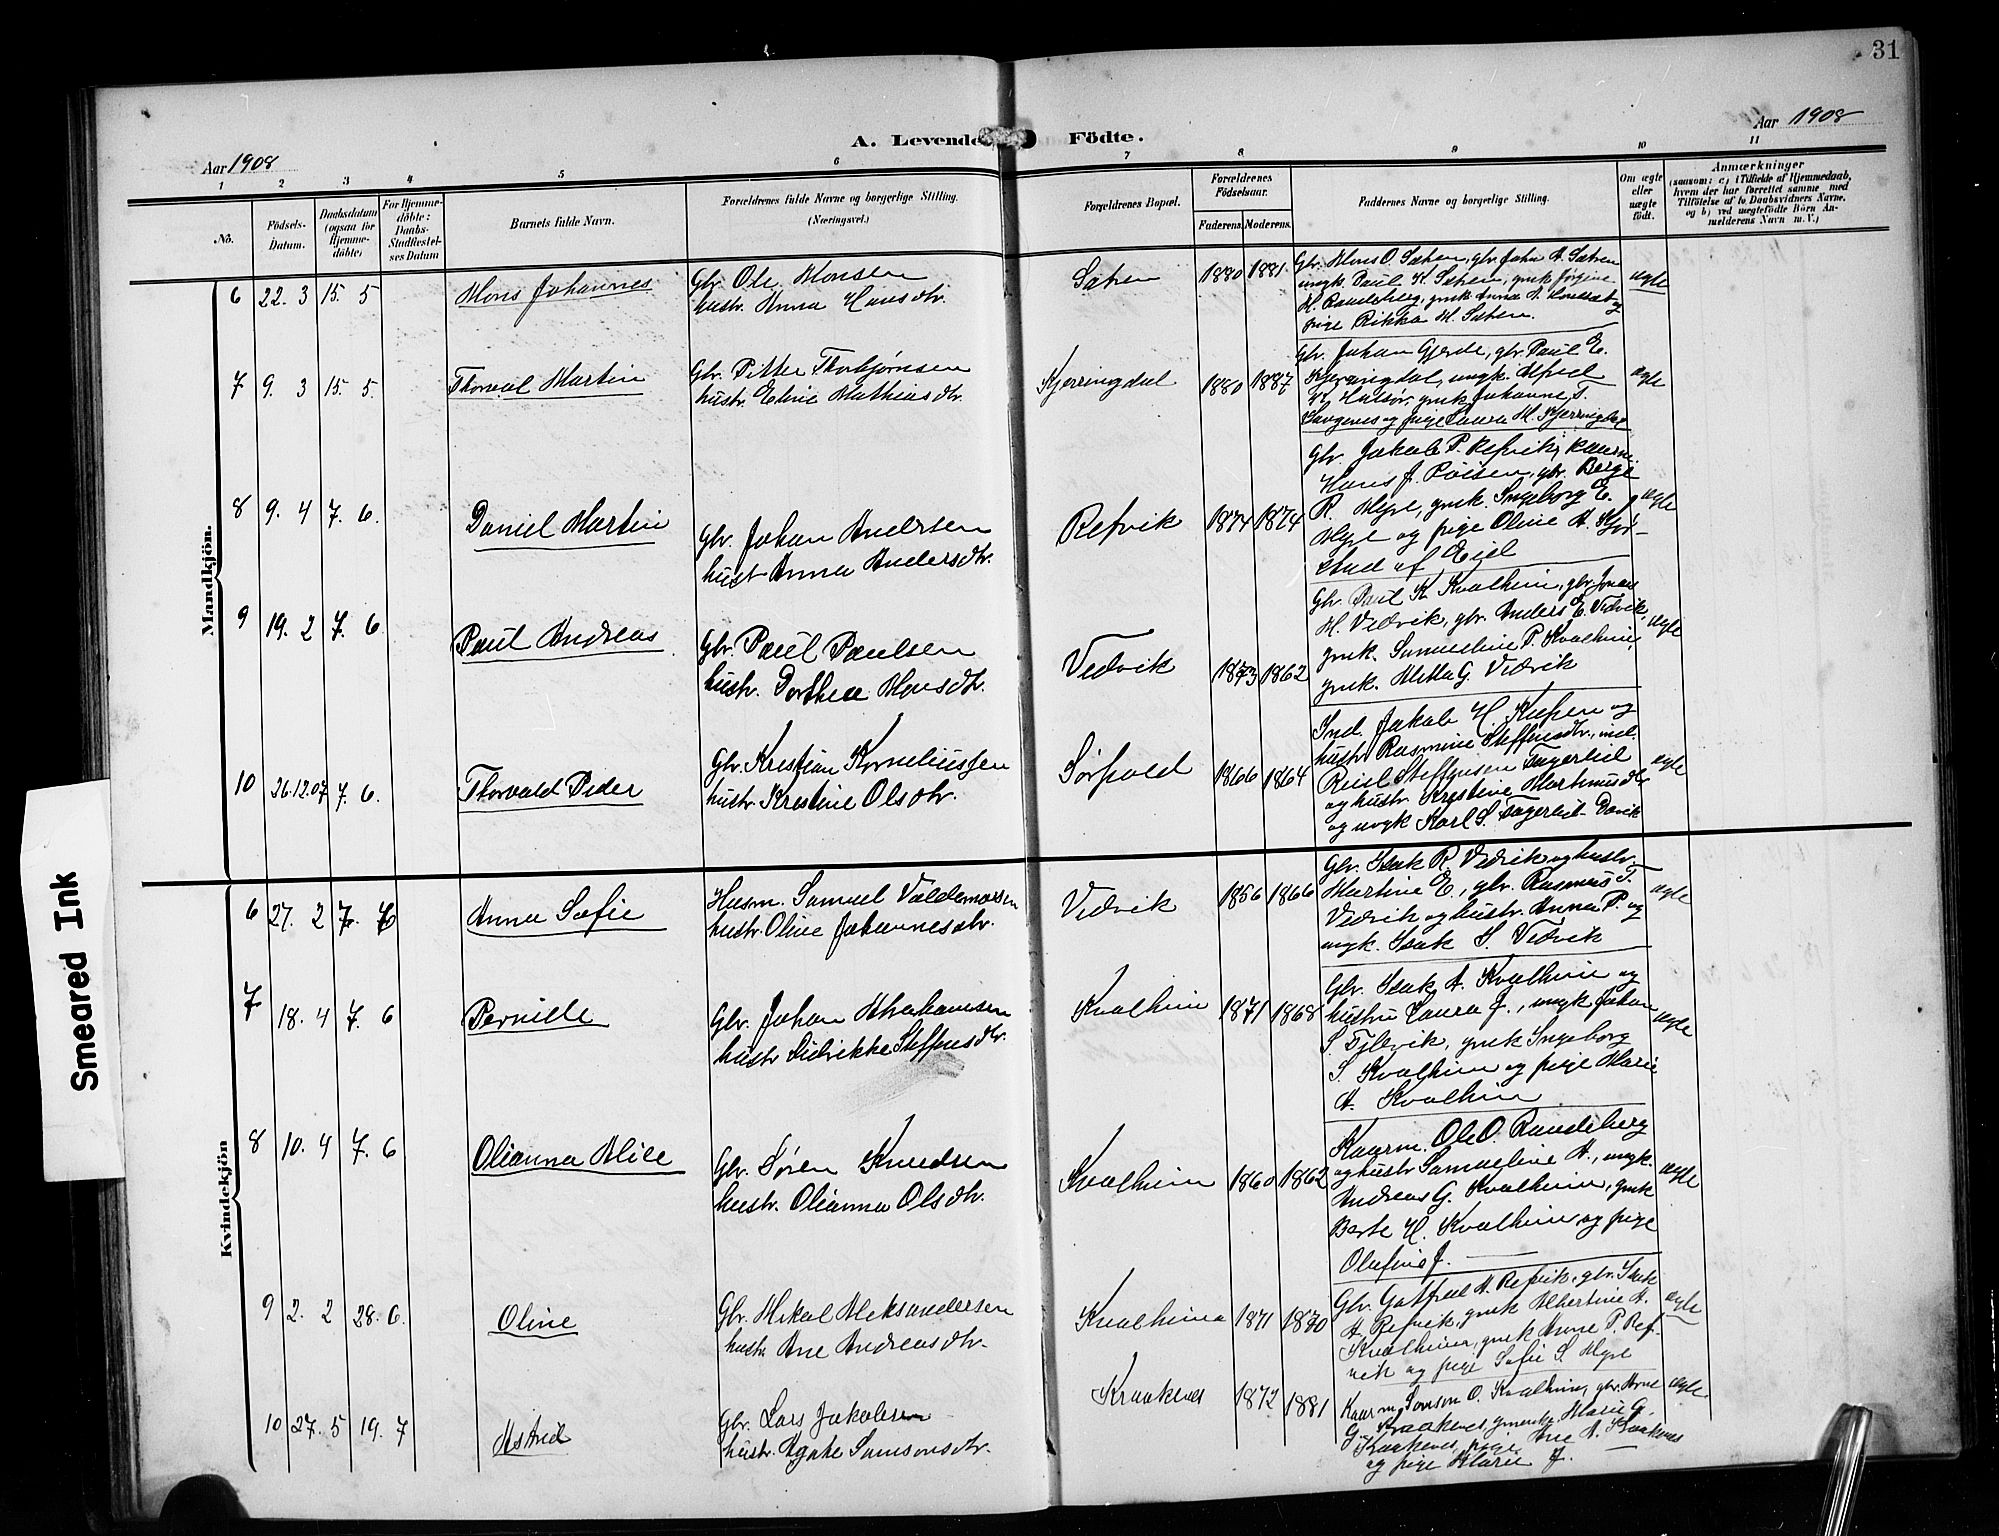 31
Aar 1908
A. Levende Födte.
Aar 1908
1 2 3 4 5 6 7 8 9 10 11
No.
Födsels-Datum.
Daabsdatum (ogsaa for Hjemme-döbte)
For Hjemme-döbte: Daabs-Stadfæstel-ses Datum
Barnets fulde Navn.
Forældrenes fulde Navne og borgerlige Stilling.
(Næringsvei.)
Forældrenes Bopæl.
Forældrenes Födselsaar.
Faderens. Moderens.
Faddernes Navne og borgerlige Stilling.
Om ægte eller uægte födt.
Anmærkninger
(saasom: a) i Tilfælde af Hjemmedaab,
hvem der har forrettet samme, med
Tilföielse af to Daabsvidners Navne.
og b) ved uægtefödte Börn An-
melderens Navn m. V.)
Mandkjön.
6 22. 3 15. 5 Mons Johannes Gbr. Ole Monsen Sætren 1880 1881 Gbr. Mons O. Sætren, gbr. John A. Sætren ægte
hustr. Anna Hansdtr. ungk. Paul K. Sætren, gmk. Jørgine
M. Raudeberg, gmk. Anna A.
pige Rikka M. Sætren.
7 9. 3 15. 5 Thorvald Martin Gbr. Petter Thorbjørnsen Kjerringdal 1880 1887 Gbr. Johan Gjerde, gbr. Paul E. ægte
hustr. Eline Mathiasdtr. Kjerringdal, ungk. Alfred
K. Halsør, gmk. Johanne T.
og pige Laura M. Kjerringdal
8 9. 4 7. 6. Daniel Martin Gbr. Johan Andersen Refvik 1874 1874 Gbr. Jakob P. Refvik, kaarm. ægte
hust. Anna Andersdtr. Hans J. gbr. Berge
R. Myre, gmk. Ingeborg E.
Myre og pige Oline A. Kjør-
stad af Eid
9 19. 2 7. 6 Paul Andreas Gbr. Paul Paulsen Vedvik 1873 1862 Gbr. Paul K. Kvalheim, gbr. Jonas ægte
hustr. Dorthea Monsdtr. M. Vedvik, gbr. Anders E. Vedvik,
gmk. Samueline P. Kvalheim,
gmk. Metta G. Vedvik
10 26.12.07 7. 6. Thorvald Peder Gbr. Kristian Korneliussen Sørpold 1866 1864 Ind. Jakob H. og ægte
hustr. Kristine Olsdtr. hustr. Rasmine Steffensdtr., ind.
Steffensen Fagerlid
og hustr. Kristine Martinusdtr.
og ungk Karl S. Fagerlid Davik
Kvindekjön
6 27. 2 7. 6 Anna Sofie Husm. Samuel Valdemarsen Vedvik 1856 1866 Gbr. Isak R. Vedvik og hustr. ægte
hustr. Oline Johannesdtr. Martine E., gbr. Rasmus T.
Vedvik og hustr. Anna P. og
ungk. Isak S. Vedvik
7 18. 4 7. 6 Pernille Gbr. Johan Abrahamsen Kvalheim 1871 1868 Gbr. Isak A. Kvalheim og ægte
hustr. Didrikke Steffensdtr. hustru Laura J., ungk. Johan
S. gmk Ingeborg
S. Kvalheim og pige Marie
A. Kvalheim
8 10. 4 7. 6 Olianna Alice Gbr. Søren Knudsen Kvalheim 1860 1862 Kaarm. Ole O. Raudeberg ægte
hustr. Olianna Olsdtr. og hustr Samueline A., ungk.
Andreas G. Kvalheim, gmk
Berte H. Kvalheim og pige
Olufine J.
9 2. 2 28. 6. Oline Gbr. Mikal Aleksandersen Kvalheim 1871 1870 Gbr. Gotfred A. Refvik, gbr. Isak ægte
hustr. Ane Andreasdtr. A. Refvik, gmk Albertine A.
Kvalheim, gmk Anne P. Ref-
vik og pige Sofie S. Myre
10 27. 5 19. 7 Astrid Gbr. Lars Jakobsen Kraakenes 1872 1881 Kaarm Samson O. Kvalheim, gbr. ægte
hustr. Agate Samsonsdtr. G. Kraakenes, Marie G.
Kraakenes, pige Ane A. Kraakenes
og pige Marie J.
Smeared Ink